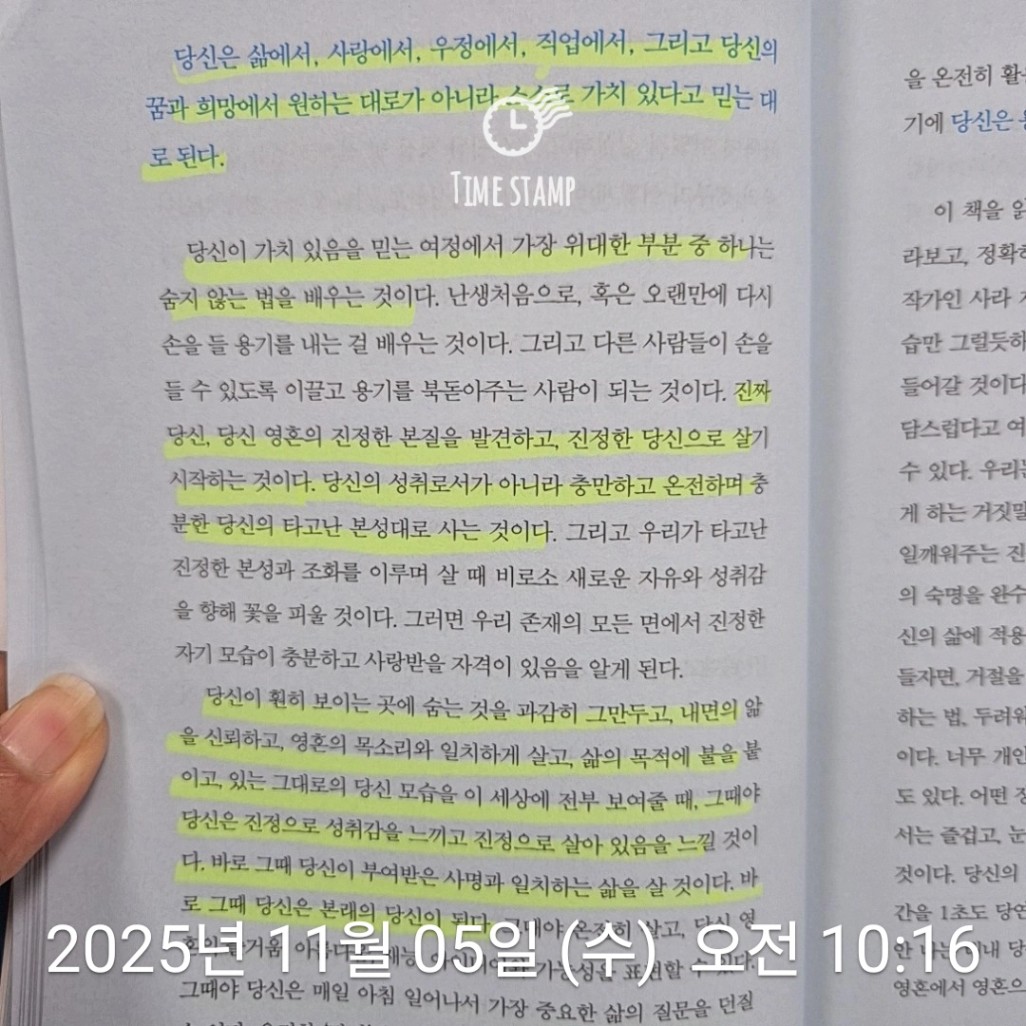 당신은 삶에서, 사랑에서, 우정에서, 직업에서, 그리고 당신의
꿈과 희망에서 원하는 대로가 아니라 스스로 가치 있다고 믿는 대
로 된다.
TIME STAMP
당신이 가치 있음을 믿는 여정에서 가장 위대한 부분 중 하나는
숨지 않는 법을 배우는 것이다. 난생처음으로, 혹은 오랜만에 다시
손을 들 용기를 내는 걸 배우는 것이다. 그리고 다른 사람들이 손을
들 수 있도록 이끌고 용기를 북돋아주는 사람이 되는 것이다. 진짜
당신, 당신 영혼의 진정한 본질을 발견하고, 진정한 당신으로 살기
시작하는 것이다. 당신의 성취로서가 아니라 충만하고 온전하며 충
분한 당신의 타고난 본성대로 사는 것이다. 그리고 우리가 타고난
진정한 본성과 조화를 이루며 살 때 비로소 새로운 자유와 성취감
을 향해 꽃을 피울 것이다. 그러면 우리 존재의 모든 면에서 진정한
자기 모습이 충분하고 사랑받을 자격이 있음을 알게 된다.
당신이 훤히 보이는 곳에 숨는 것을 과감히 그만두고, 내면의 앎
을 신뢰하고, 영혼의 목소리와 일치하게 살고, 삶의 목적에 불을 붙
이고, 있는 그대로의 당신 모습을 이 세상에 전부 보여줄 때, 그때야
당신은 진정으로 성취감을 느끼고 진정으로 살아 있음을 느낄 것이
다. 바로 그때 당신이 부여받은 사명과 일치하는 삶을 살 것이다. 바
로 그때 당신은 본래의 당신이 된다. 그때야 온전히 살고, 당신 영
그때야 당신은 매일 아침 일어나서 가장 중요한 삶의 질문을 던질
2025년 11월 05일 (수) 오전 10:16
을 온전히
기에 당신은
이 책을
라보고, 정확
작가인 사라
습만 그럴듯하
들어갈 것이다
담스럽다고
수 있다.
게 하는 거짓말
일깨워주는
의 숙명을 완수
신의 삶에 적용
들자면, 거절을
하는 법, 두려
이다. 너무 개인
도 있다. 어떤
서는 즐겁고, 눈
것이다. 당신의
간을 1초도 당연
영혼에서 영혼으